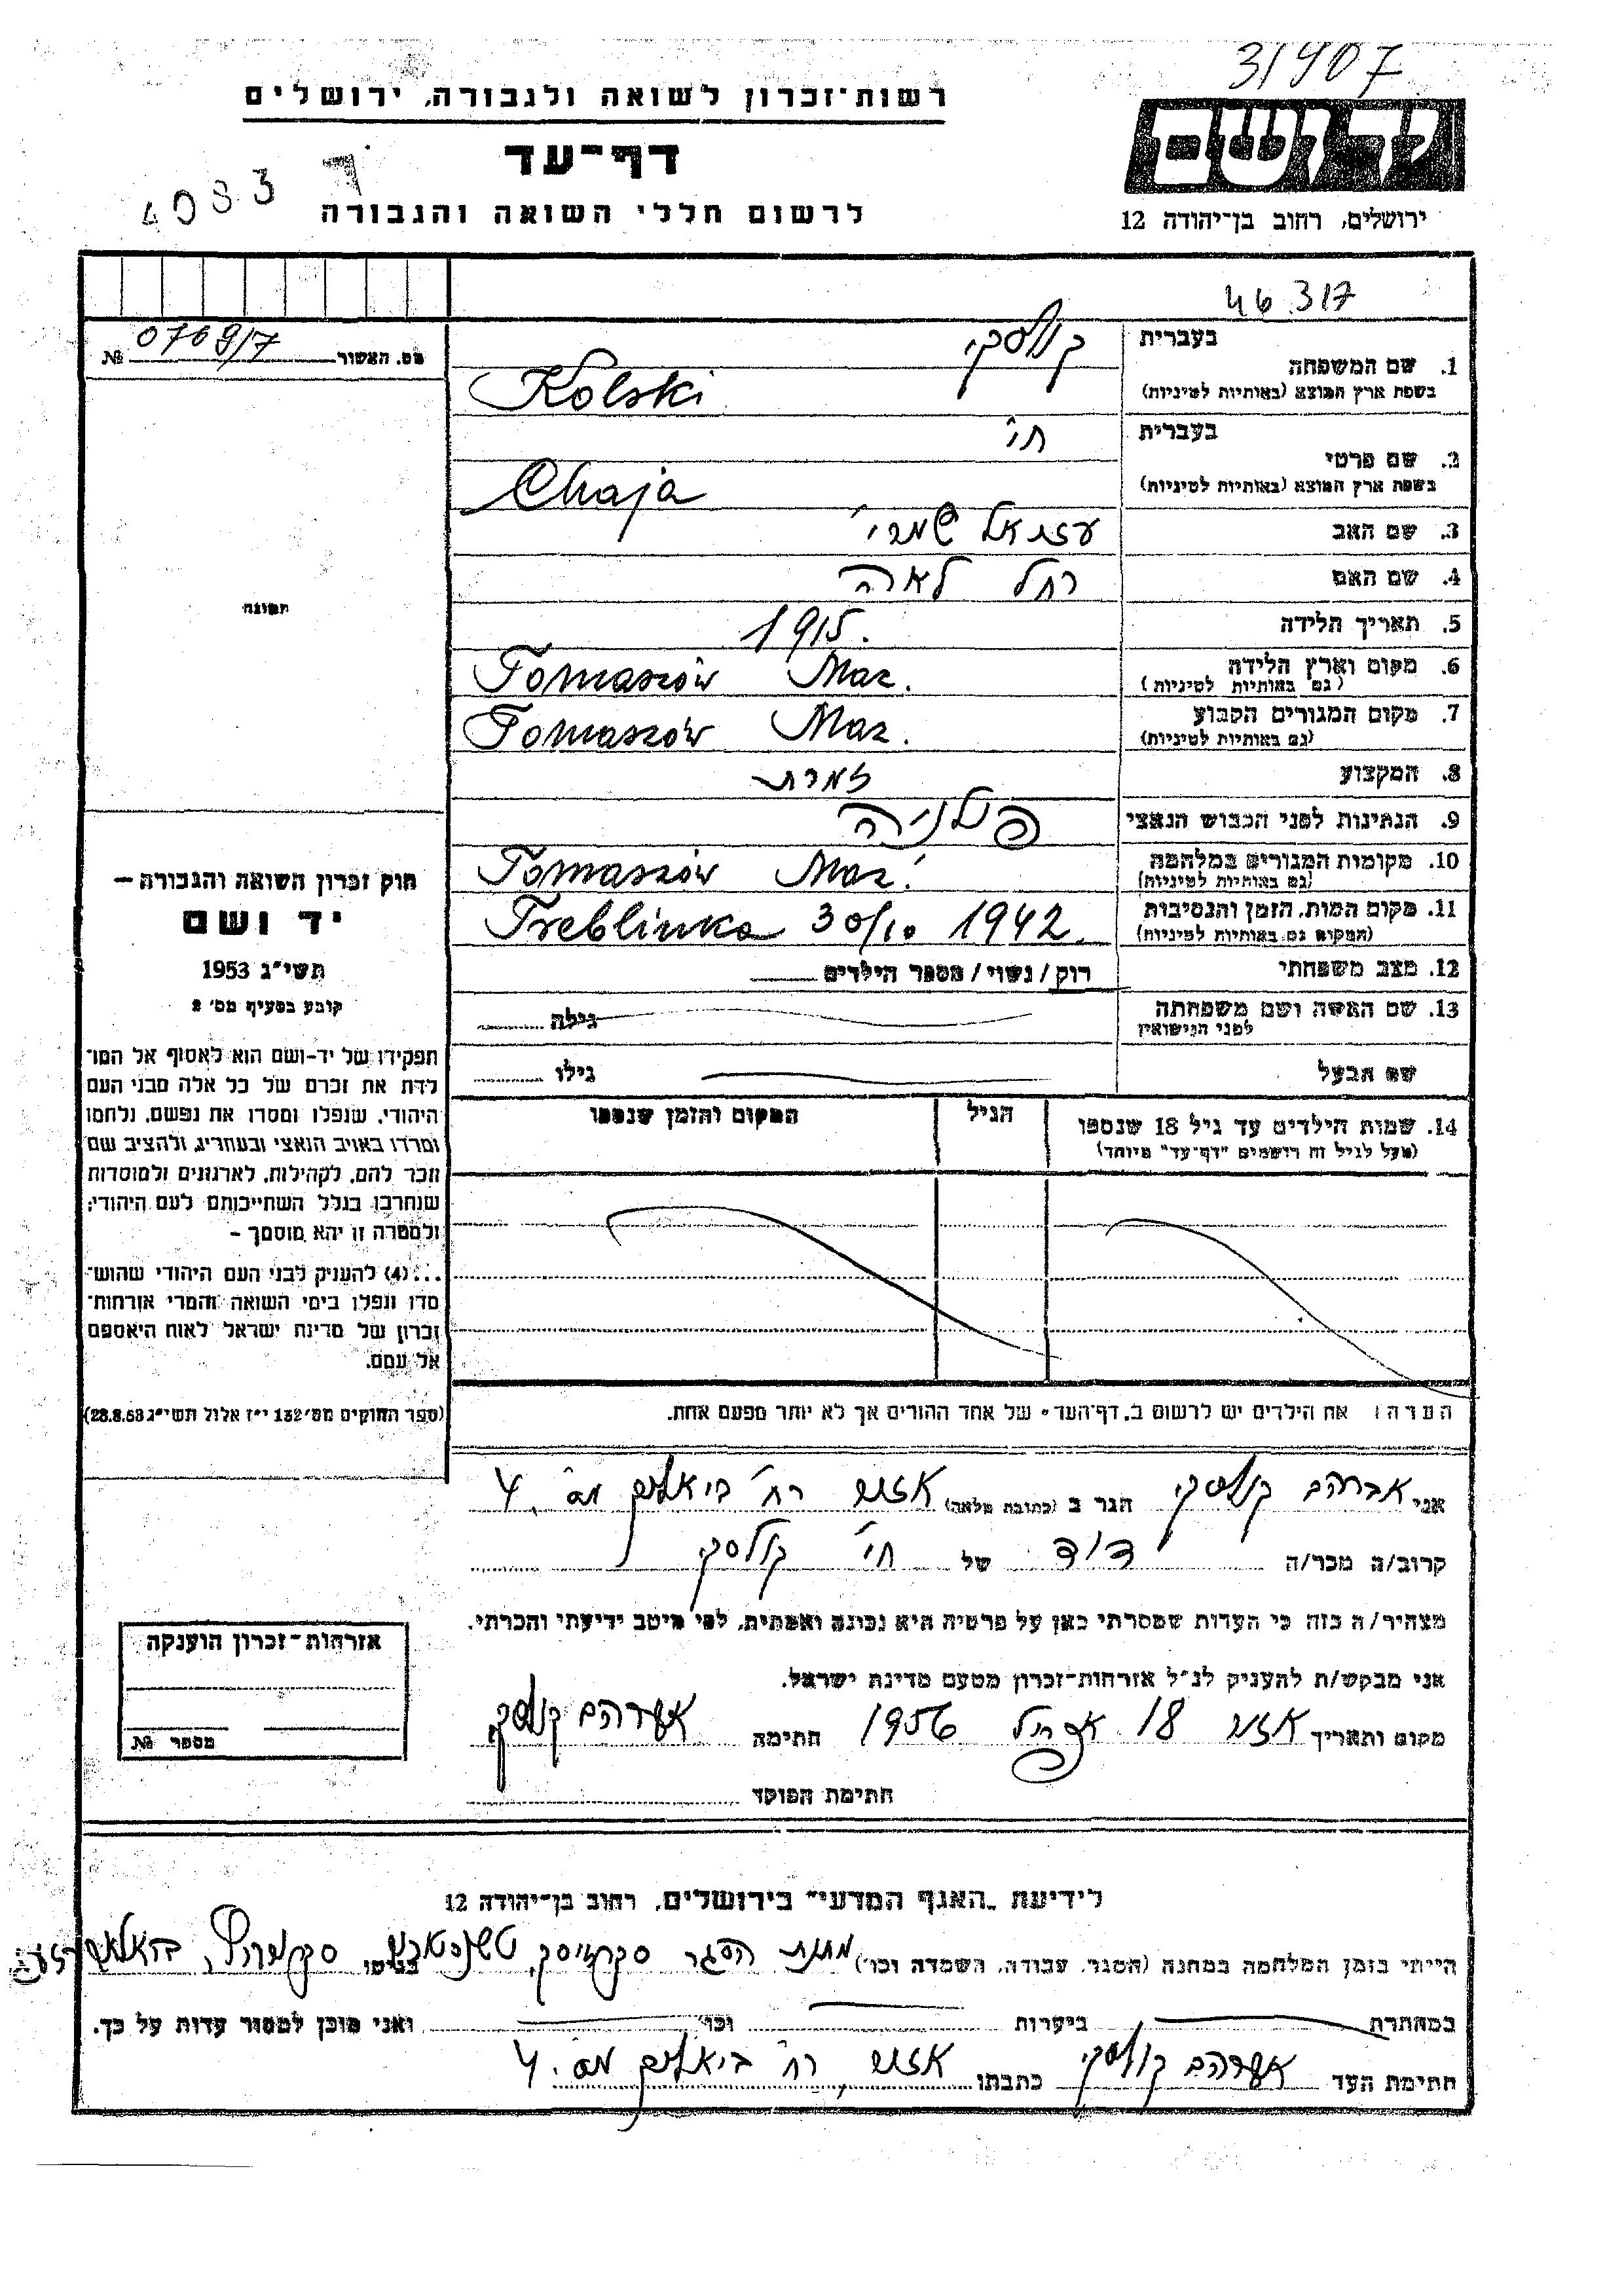 31907
רשות־זכרון לשואה ולגבורה, ירושלים
דף־עד
לרשום חללי השואה והגבורה
ירושלים, רחוב בן־יהודה 12
46317
מס. האשור № 076917
בעברית קולסקי
1. שם המשפחה
בשפת ארץ המוצא (באותיות לטיניות) Kolski
בעברית חי'
2. שם פרטי
בשפת ארץ המוצא (באותיות לטיניות) Chaja
3. שם האב עזריאל
4. שם האם רחל לאה
תמונה
5. תאריך הלידה 1915.
6. מקום וארץ הלידה Tomaszów Maz.
(גם באותיות לטיניות)
7. מקום המגורים הקבוע Tomaszów Maz.
(גם באותיות לטיניות)
8. המקצוע
9. הנתינות לפני הכבוש הנאצי פולניה
10. מקומות המגורים במלחמה Tomaszów Maz.
(גם באותיות לטיניות)
11. מקום המות, הזמן והנסיבות Treblinka 30/10 1942.
(המקום גם באותיות לטיניות)
12. מצב משפחתי רוק/נשוי/מספר הילדים
13. שם האשה ושם משפחתה גילה
לפני הנישואין
שם הבעל גילו
14. שמות הילדים עד גיל 18 שנספו הגיל המקום והזמן שנספו
(מעל לגיל זה רושמים "דף־עד" מיוחד)
חוק זכרון השואה והגבורה —
יד ושם
תשי"ג 1953
קובע בסעיף מס' 2
תפקידו של יד-ושם הוא לאסוף אל המו־
לדת את זכרם של כל אלה מבני העם
היהודי, שנפלו ומסרו את נפשם, נלחמו
ומרדו באויב הנאצי ובעוזריו, ולהציב שם
וזכר להם, לקהילות, לארגונים ולמוסדות
שנחרבו בגלל השתייכותם לעם היהודי;
ולמטרה זו יהא מוסמך –
...(4) להעניק לבני העם היהודי שהוש־
מדו ונפלו בימי השואה והמרי אזרחות־
זכרון של מדינת ישראל לאות היאספם
אל עמם.
(ספר החוקים מס' 132 י"ז אלול תשי"ג 28.8.53)
הערה: את הילדים יש לרשום ב„דף־העד" של אחד ההורים אך לא יותר מפעם אחת.
אני אברהם קולסקי הגר ב (כתובת מלאה) אזור רח' ביאליק מס. 4
קרוב/ה מכר/ה דוד של חי' קולסקי
מצהיר/ה בזה כי העדות שמסרתי כאן על פרטיה היא נכונה ואמתית, לפי מיטב ידיעתי והכרתי.
אני מבקש/ת להעניק לנ"ל אזרחות־זכרון מטעם מדינת ישראל.
מקום ותאריך אזור 18 אפריל 1956 חתימה אברהם קולסקי
חתימת הפוקד
אזרחות־זכרון הוענקה
מספר №
לידיעת „האגף המדעי" בירושלים, רחוב בן־יהודה 12
הייתי בזמן המלחמה במחנה (הסגר, עבודה, השמדה וכו') מחנות הסגר בגיטו
במחתרת ביערות וכו' ואני מוכן למסור עדות על כך.
חתימת העד אברהם קולסקי כתבתו אזור, רח' ביאליק מס. 4